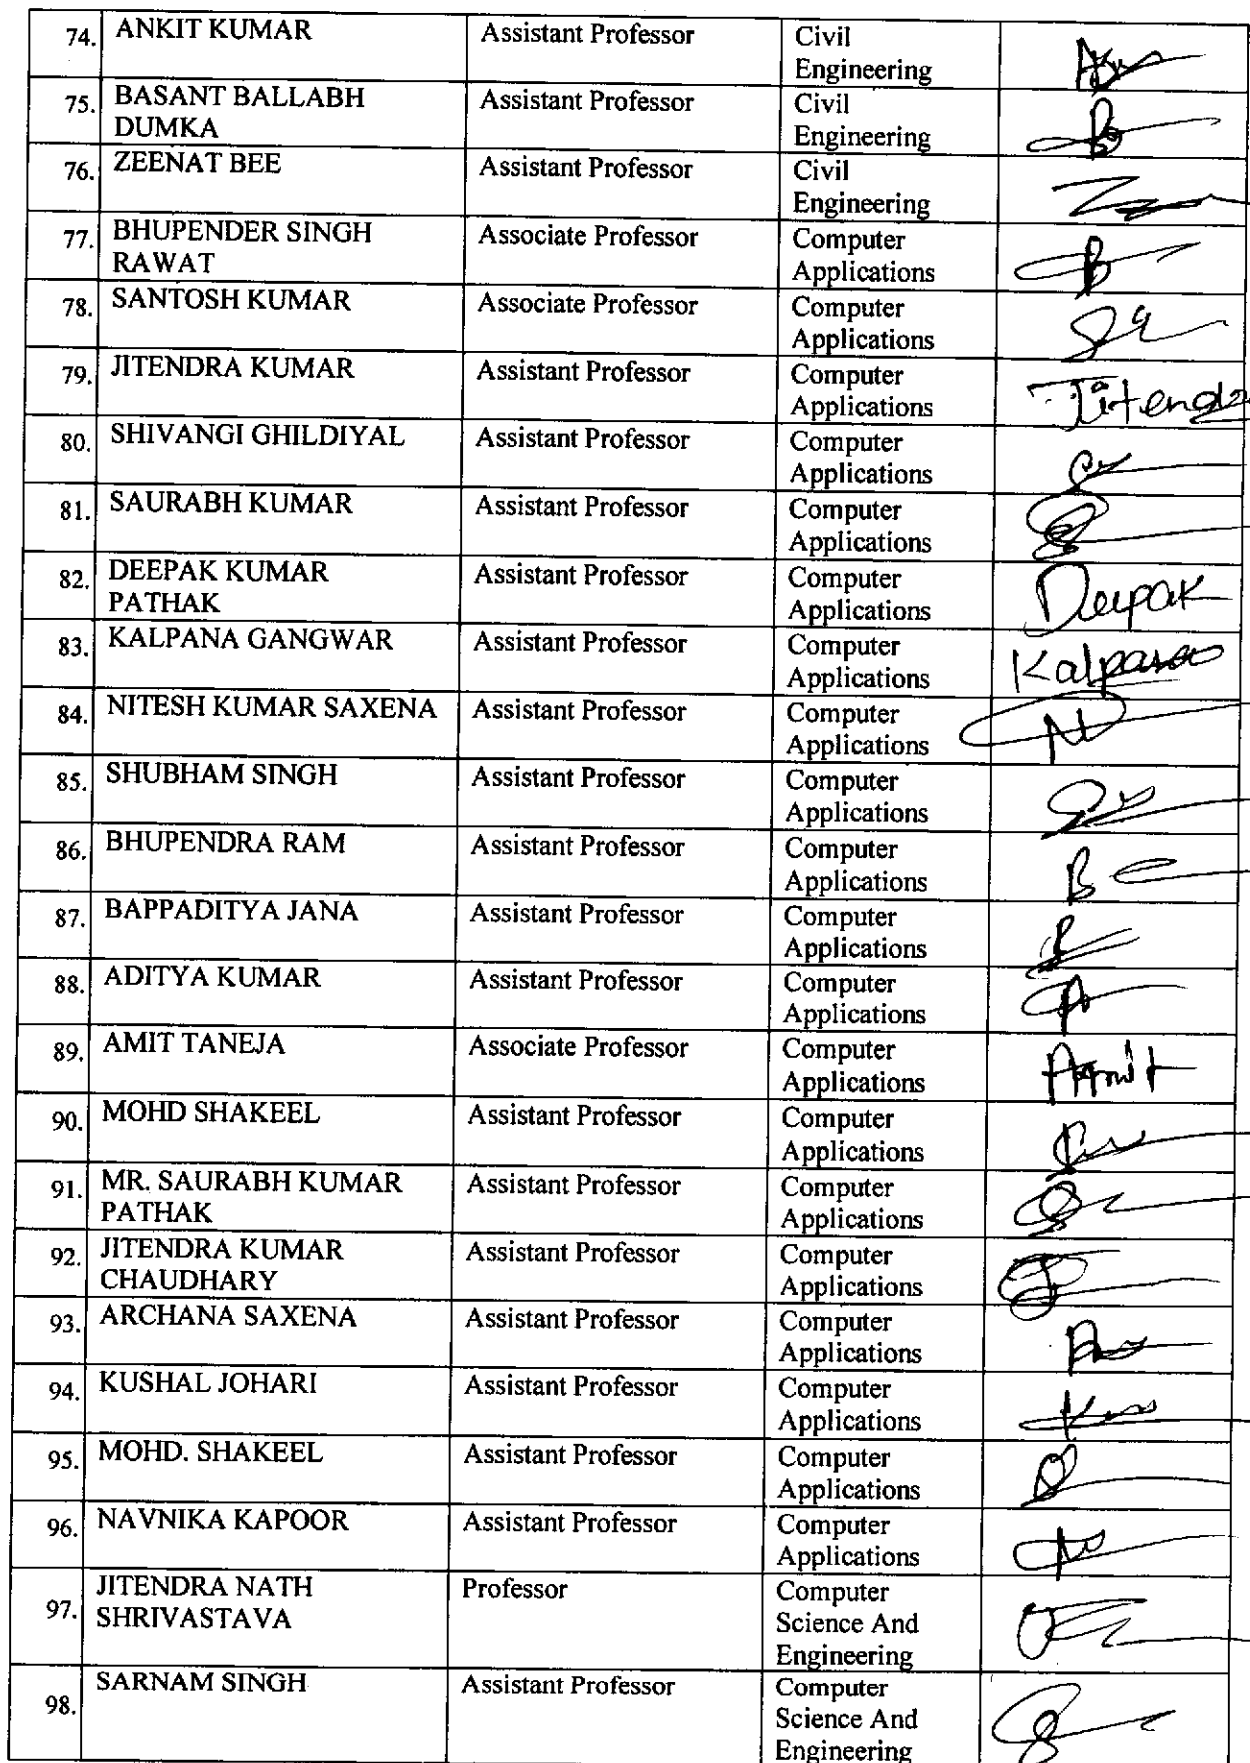 74. ANKIT KUMAR Assistant Professor Civil
Engineering
75. BASANT BALLABH Assistant Professor Civil
DUMKA Engineering
76. ZEENAT BEE Assistant Professor Civil
Engineering
77. BHUPENDER SINGH Associate Professor Computer
RAWAT Applications
78. SANTOSH KUMAR Associate Professor Computer
Applications
79. JITENDRA KUMAR Assistant Professor Computer
Applications Jitendra
80. SHIVANGI GHILDIYAL Assistant Professor Computer
Applications
81. SAURABH KUMAR Assistant Professor Computer
Applications
82. DEEPAK KUMAR Assistant Professor Computer
PATHAK Applications Deepak
83. KALPANA GANGWAR Assistant Professor Computer
Applications Kalpana
84. NITESH KUMAR SAXENA Assistant Professor Computer
Applications N
85. SHUBHAM SINGH Assistant Professor Computer
Applications
86. BHUPENDRA RAM Assistant Professor Computer
Applications B
87. BAPPADITYA JANA Assistant Professor Computer
Applications
88. ADITYA KUMAR Assistant Professor Computer
Applications
89. AMIT TANEJA Associate Professor Computer
Applications Amit
90. MOHD SHAKEEL Assistant Professor Computer
Applications
91. MR. SAURABH KUMAR Assistant Professor Computer
PATHAK Applications
92. JITENDRA KUMAR Assistant Professor Computer
CHAUDHARY Applications
93. ARCHANA SAXENA Assistant Professor Computer
Applications
94. KUSHAL JOHARI Assistant Professor Computer
Applications
95. MOHD. SHAKEEL Assistant Professor Computer
Applications
96. NAVNIKA KAPOOR Assistant Professor Computer
Applications
97. JITENDRA NATH Professor Computer
SHRIVASTAVA Science And
Engineering
98. SARNAM SINGH Assistant Professor Computer
Science And
Engineering